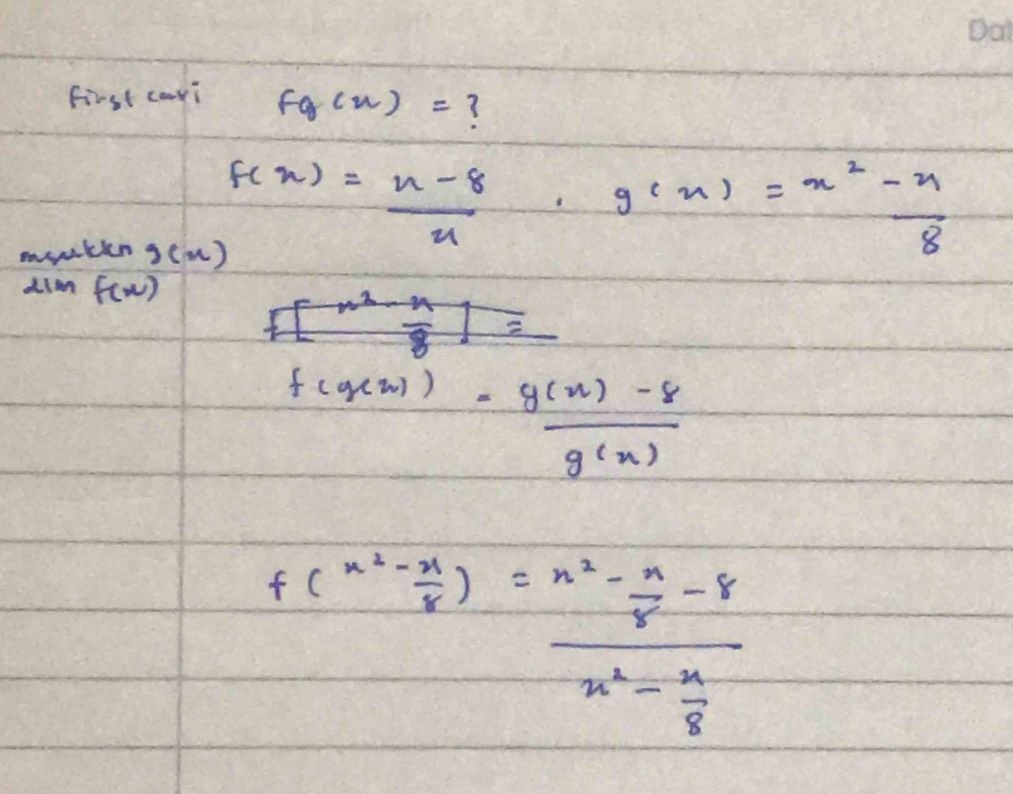 Dat
First cari fg(x) = ?
f(x) = x - 8 / x , g(x) = x² - x/8
msukkn g(x)
dlm f(x)
f[x² - x/8] =
f(g(x)) = g(x) - 8 / g(x)
f(x² - x/8) = x² - x/8 - 8 / x² - x/8